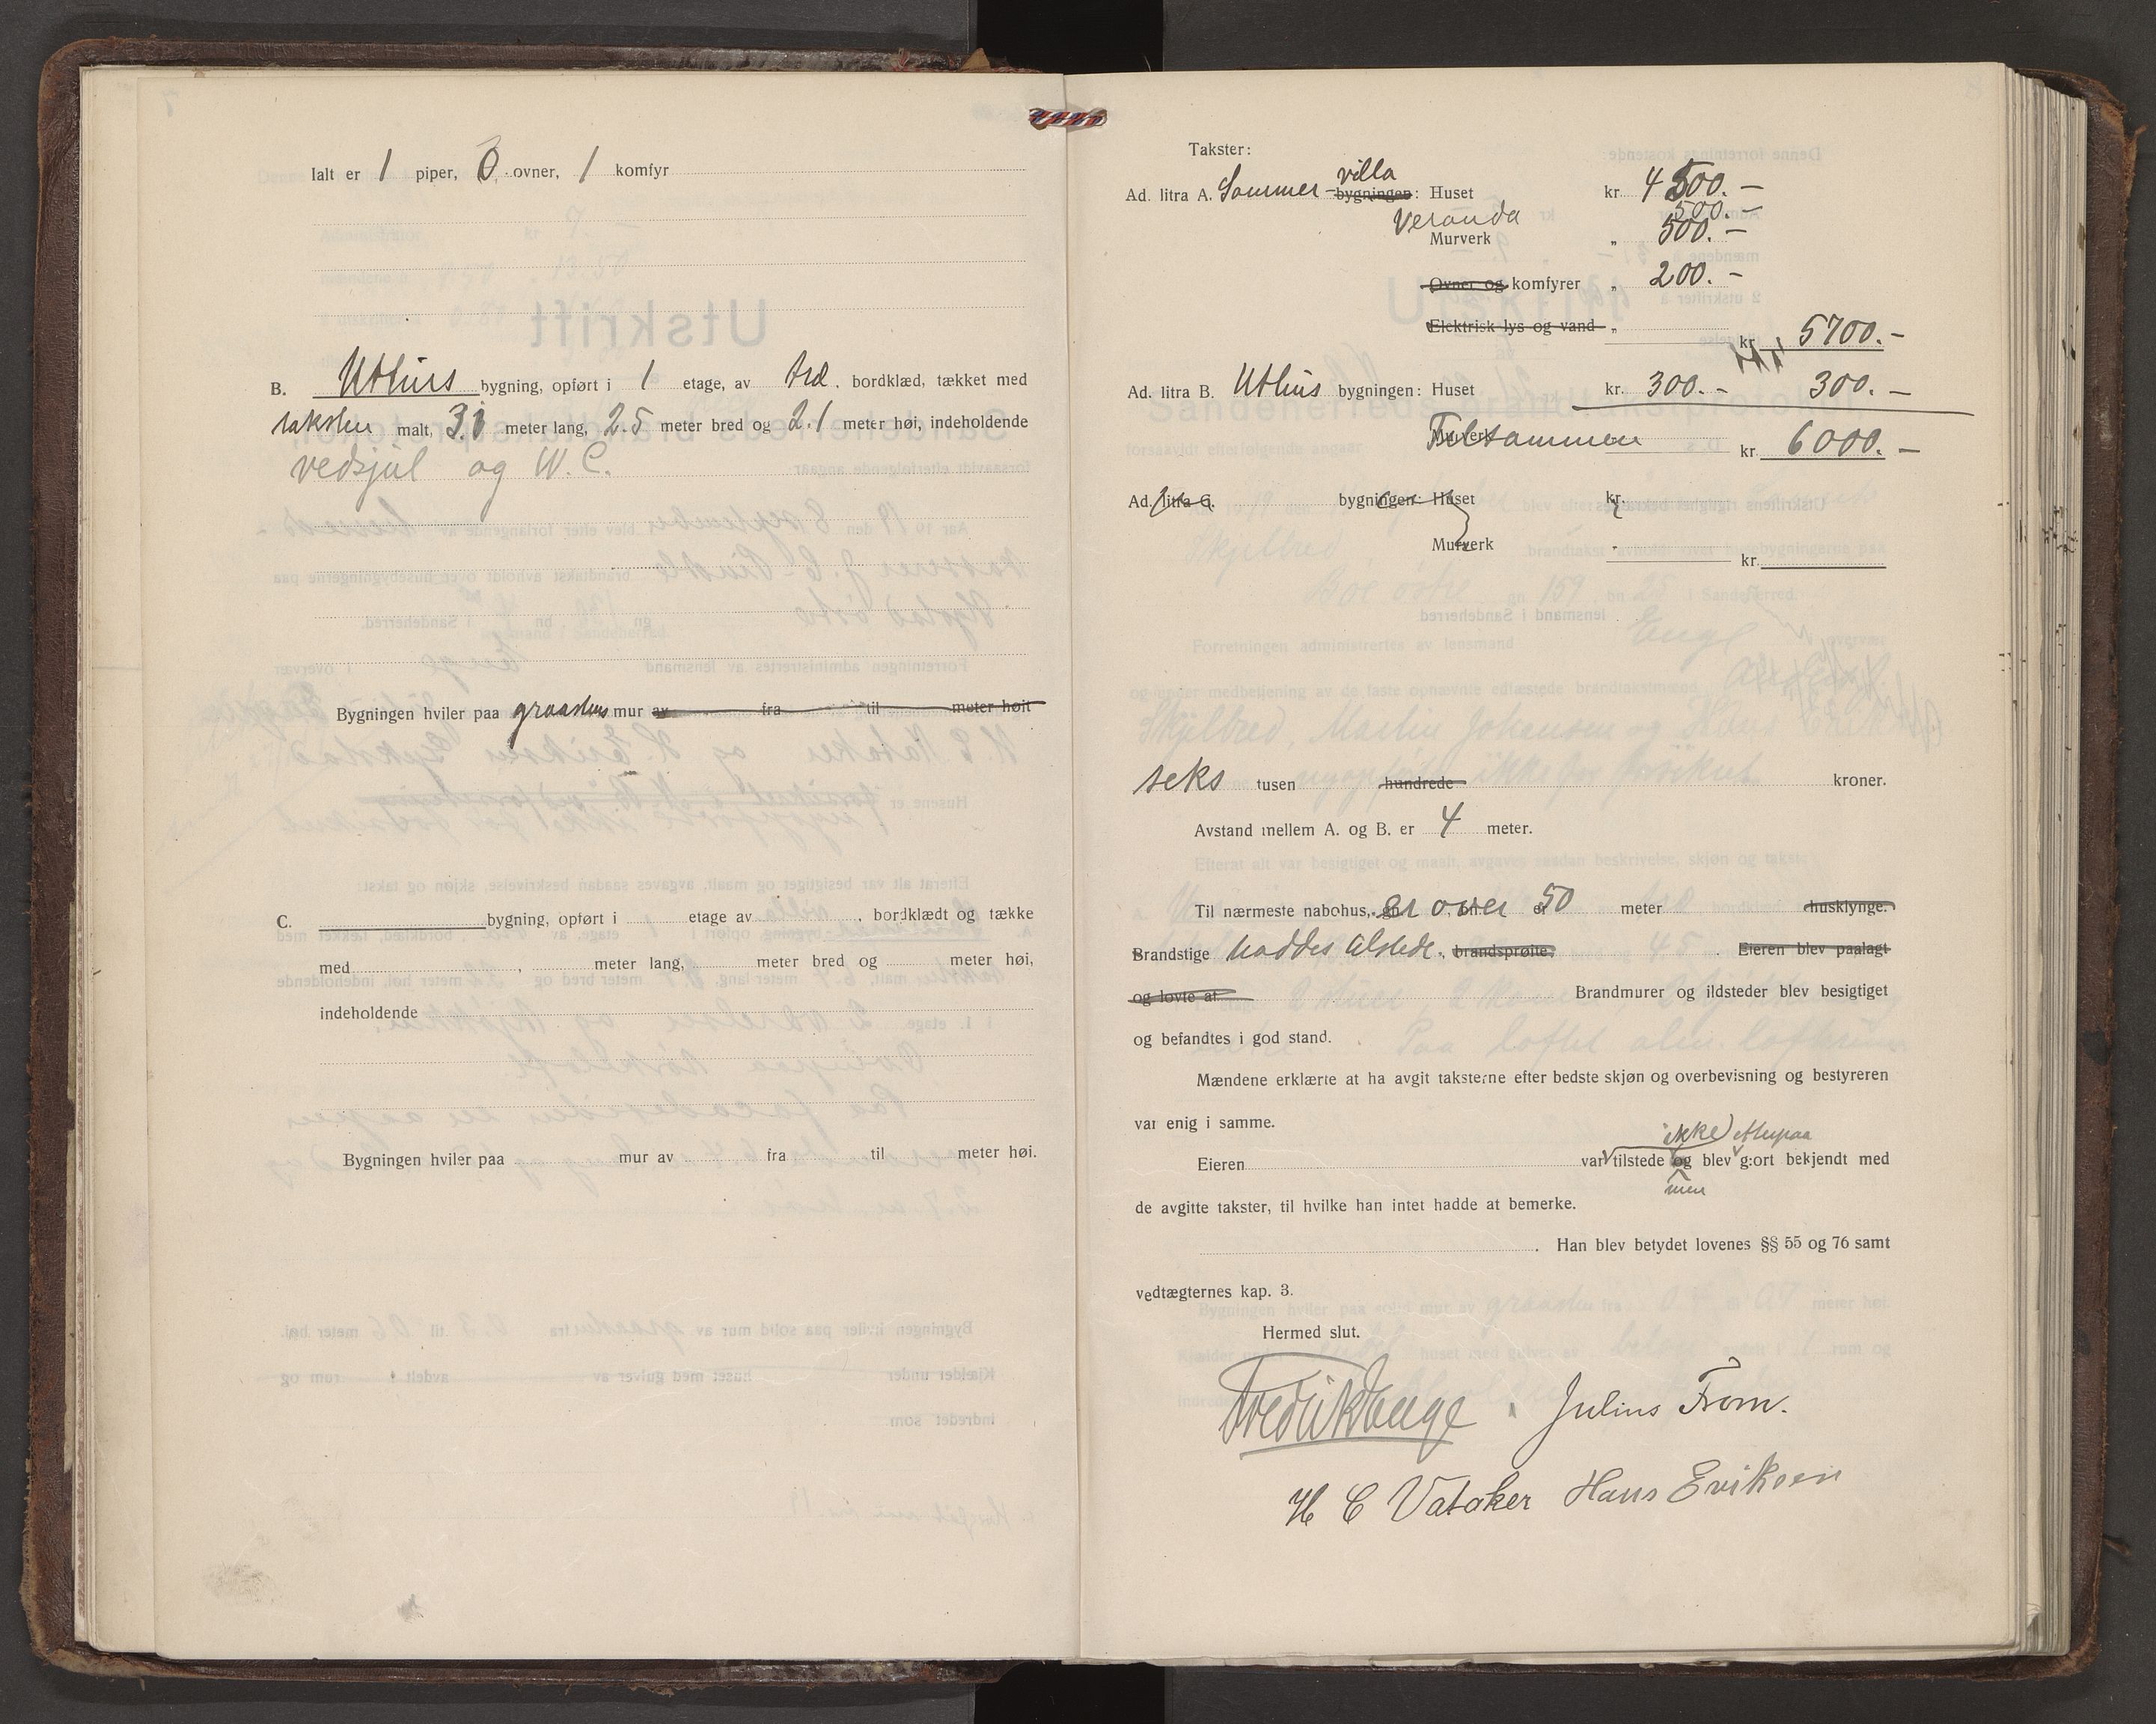 Ialt er 1 piper, 0 ovner, 1 komfyr
B. Uthus bygning, opført i 1 etage, av træ, bordklæd, tækket med
taksten malt, 3.1 meter lang, 2.5 meter bred og 2.1 meter høi, indeholdende
vedsjul og W. C.
Bygningen hviler paa graastens mur av fra til meter høit
C. bygning, opført i etage av , bordklædt og tække
med , meter lang, meter bred og meter høi,
indeholdende
Bygningen hviler paa mur av fra til meter høi.
Takster:
villa
Ad. litra A. Sommer- bygningen: Huset kr. 4500.—
Veranda 500.—
Murverk „ 500.—
Ovner og komfyrer „ 200.—
Elektrisk lys og vand „
kr. 5700.—
Ad. litra B. Uthus bygningen: Huset kr. 300.— 300.—
Murverk Tilsammen kr. 6000.—
Ad. litra C. bygningen: Huset kr.
Murverk
kr.
seks tusen hundrede kroner.
Avstand mellem A. og B. er 4 meter.
Til nærmeste nabohus, er over 50 meter husklynge.
Brandstige haddes tilstede, brandsprøite, . Eieren blev paalagt
og lovte at Brandmurer og ildsteder blev besigtiget
og befandtes i god stand.
Mændene erklærte at ha avgit taksterne efter bedste skjøn og overbevisning og bestyreren
var enig i samme.
ikke
Eieren var tilstede og blev gjort bekjendt med
men
de avgitte takster, til hvilke han intet hadde at bemerke.
. Han blev betydet lovenes §§ 55 og 76 samt
vedtægternes kap. 3.
Hermed slut.
Fredrik Enge Julius From.
H C Vataker Hans Eriksen